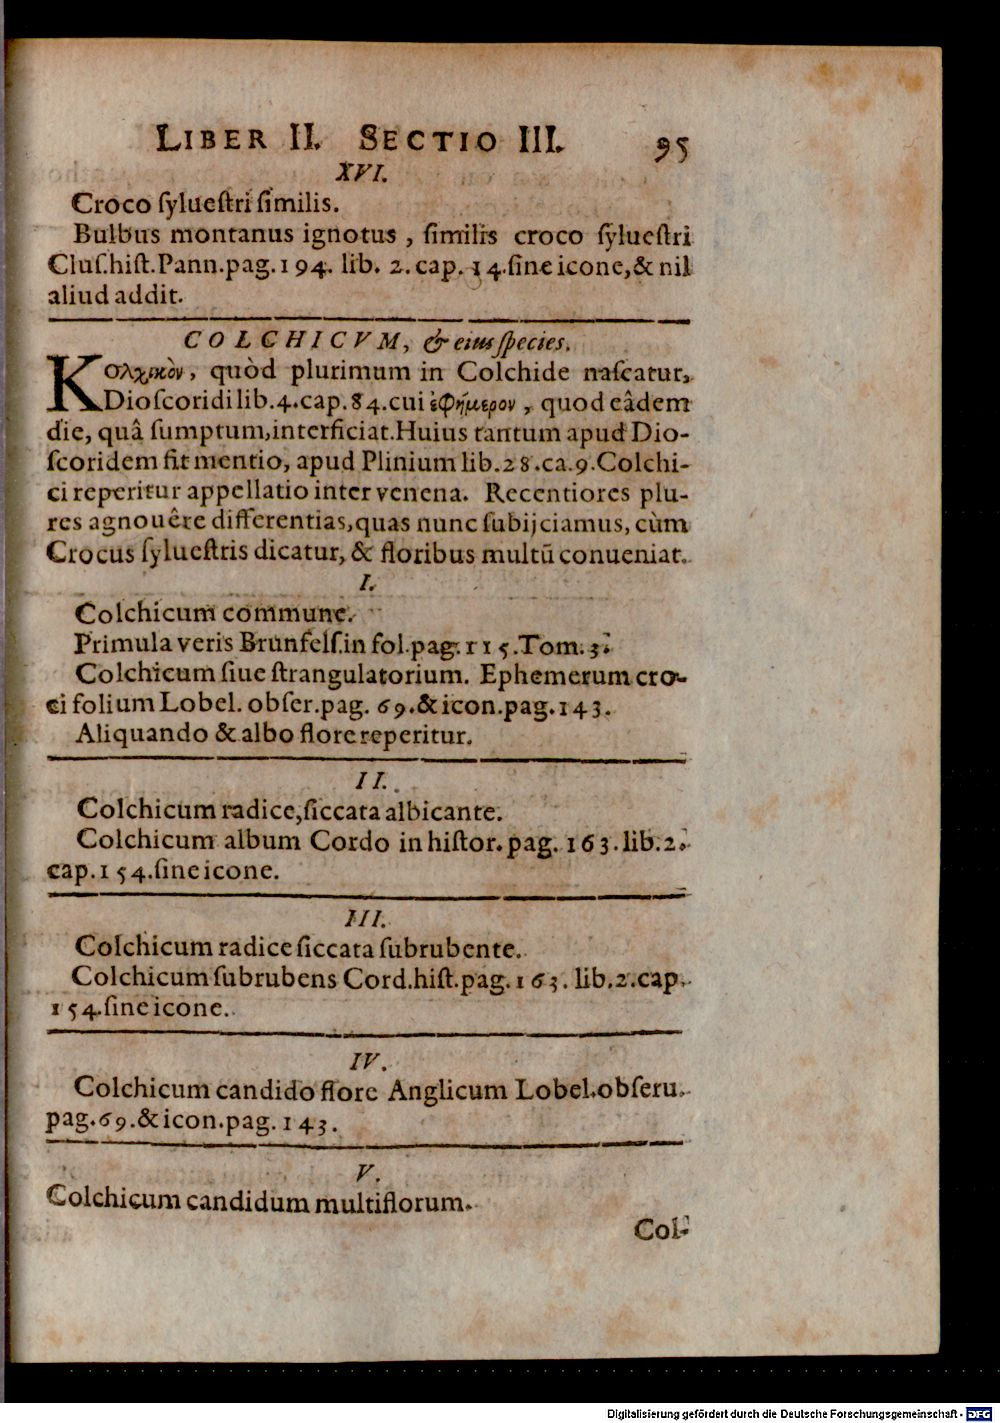 LIBER II. SECTIO III. 95
XVI.
Croco ſylueſtri ſimilis.
Bulbus montanus ignotus, ſimilis croco ſylueſtri
Cluſ.hiſt.Pann.pag.194. lib. 2. cap. 14.ſine icone,& nil
aliud addit.
COLCHICVM, & eius ſpecies.
Κολχικὸν, quòd plurimum in Colchide naſcatur,
Dioſcoridi lib.4.cap.84.cui ἐφήμερον, quod eâdem
die, quâ ſumptum,interficiat.Huius tantum apud Dio-
ſcoridem fit mentio, apud Plinium lib.28.ca.9.Colchi-
ci reperitur appellatio inter venena. Recentiores plu-
res agnouêre differentias,quas nunc ſubijciamus, cùm
Crocus ſylueſtris dicatur, & floribus multū conueniat.
I.
Colchicum commune.
Primula veris Brunfelſ.in fol.pag.115.Tom.3.
Colchicum ſiue ſtrangulatorium. Ephemerum cro-
ci folium Lobel. obſer.pag. 69.& icon.pag.143.
Aliquando & albo flore reperitur.
II.
Colchicum radice,ſiccata albicante.
Colchicum album Cordo in hiſtor.pag. 163. lib.2.
cap.154.ſine icone.
III.
Colchicum radice ſiccata ſubrubente.
Colchicum ſubrubens Cord.hiſt.pag.163. lib.2.cap.
154.ſine icone.
IV.
Colchicum candido flore Anglicum Lobel.obſeru.
pag.69.& icon.pag. 143.
V.
Colchicum candidum multiflorum.
Col-
Digitalisierung gefördert durch die Deutsche Forschungsgemeinschaft - DFG